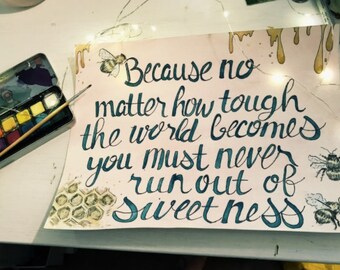 Because no
matter how tough
the world becomes
you must never
run out of
sweetness